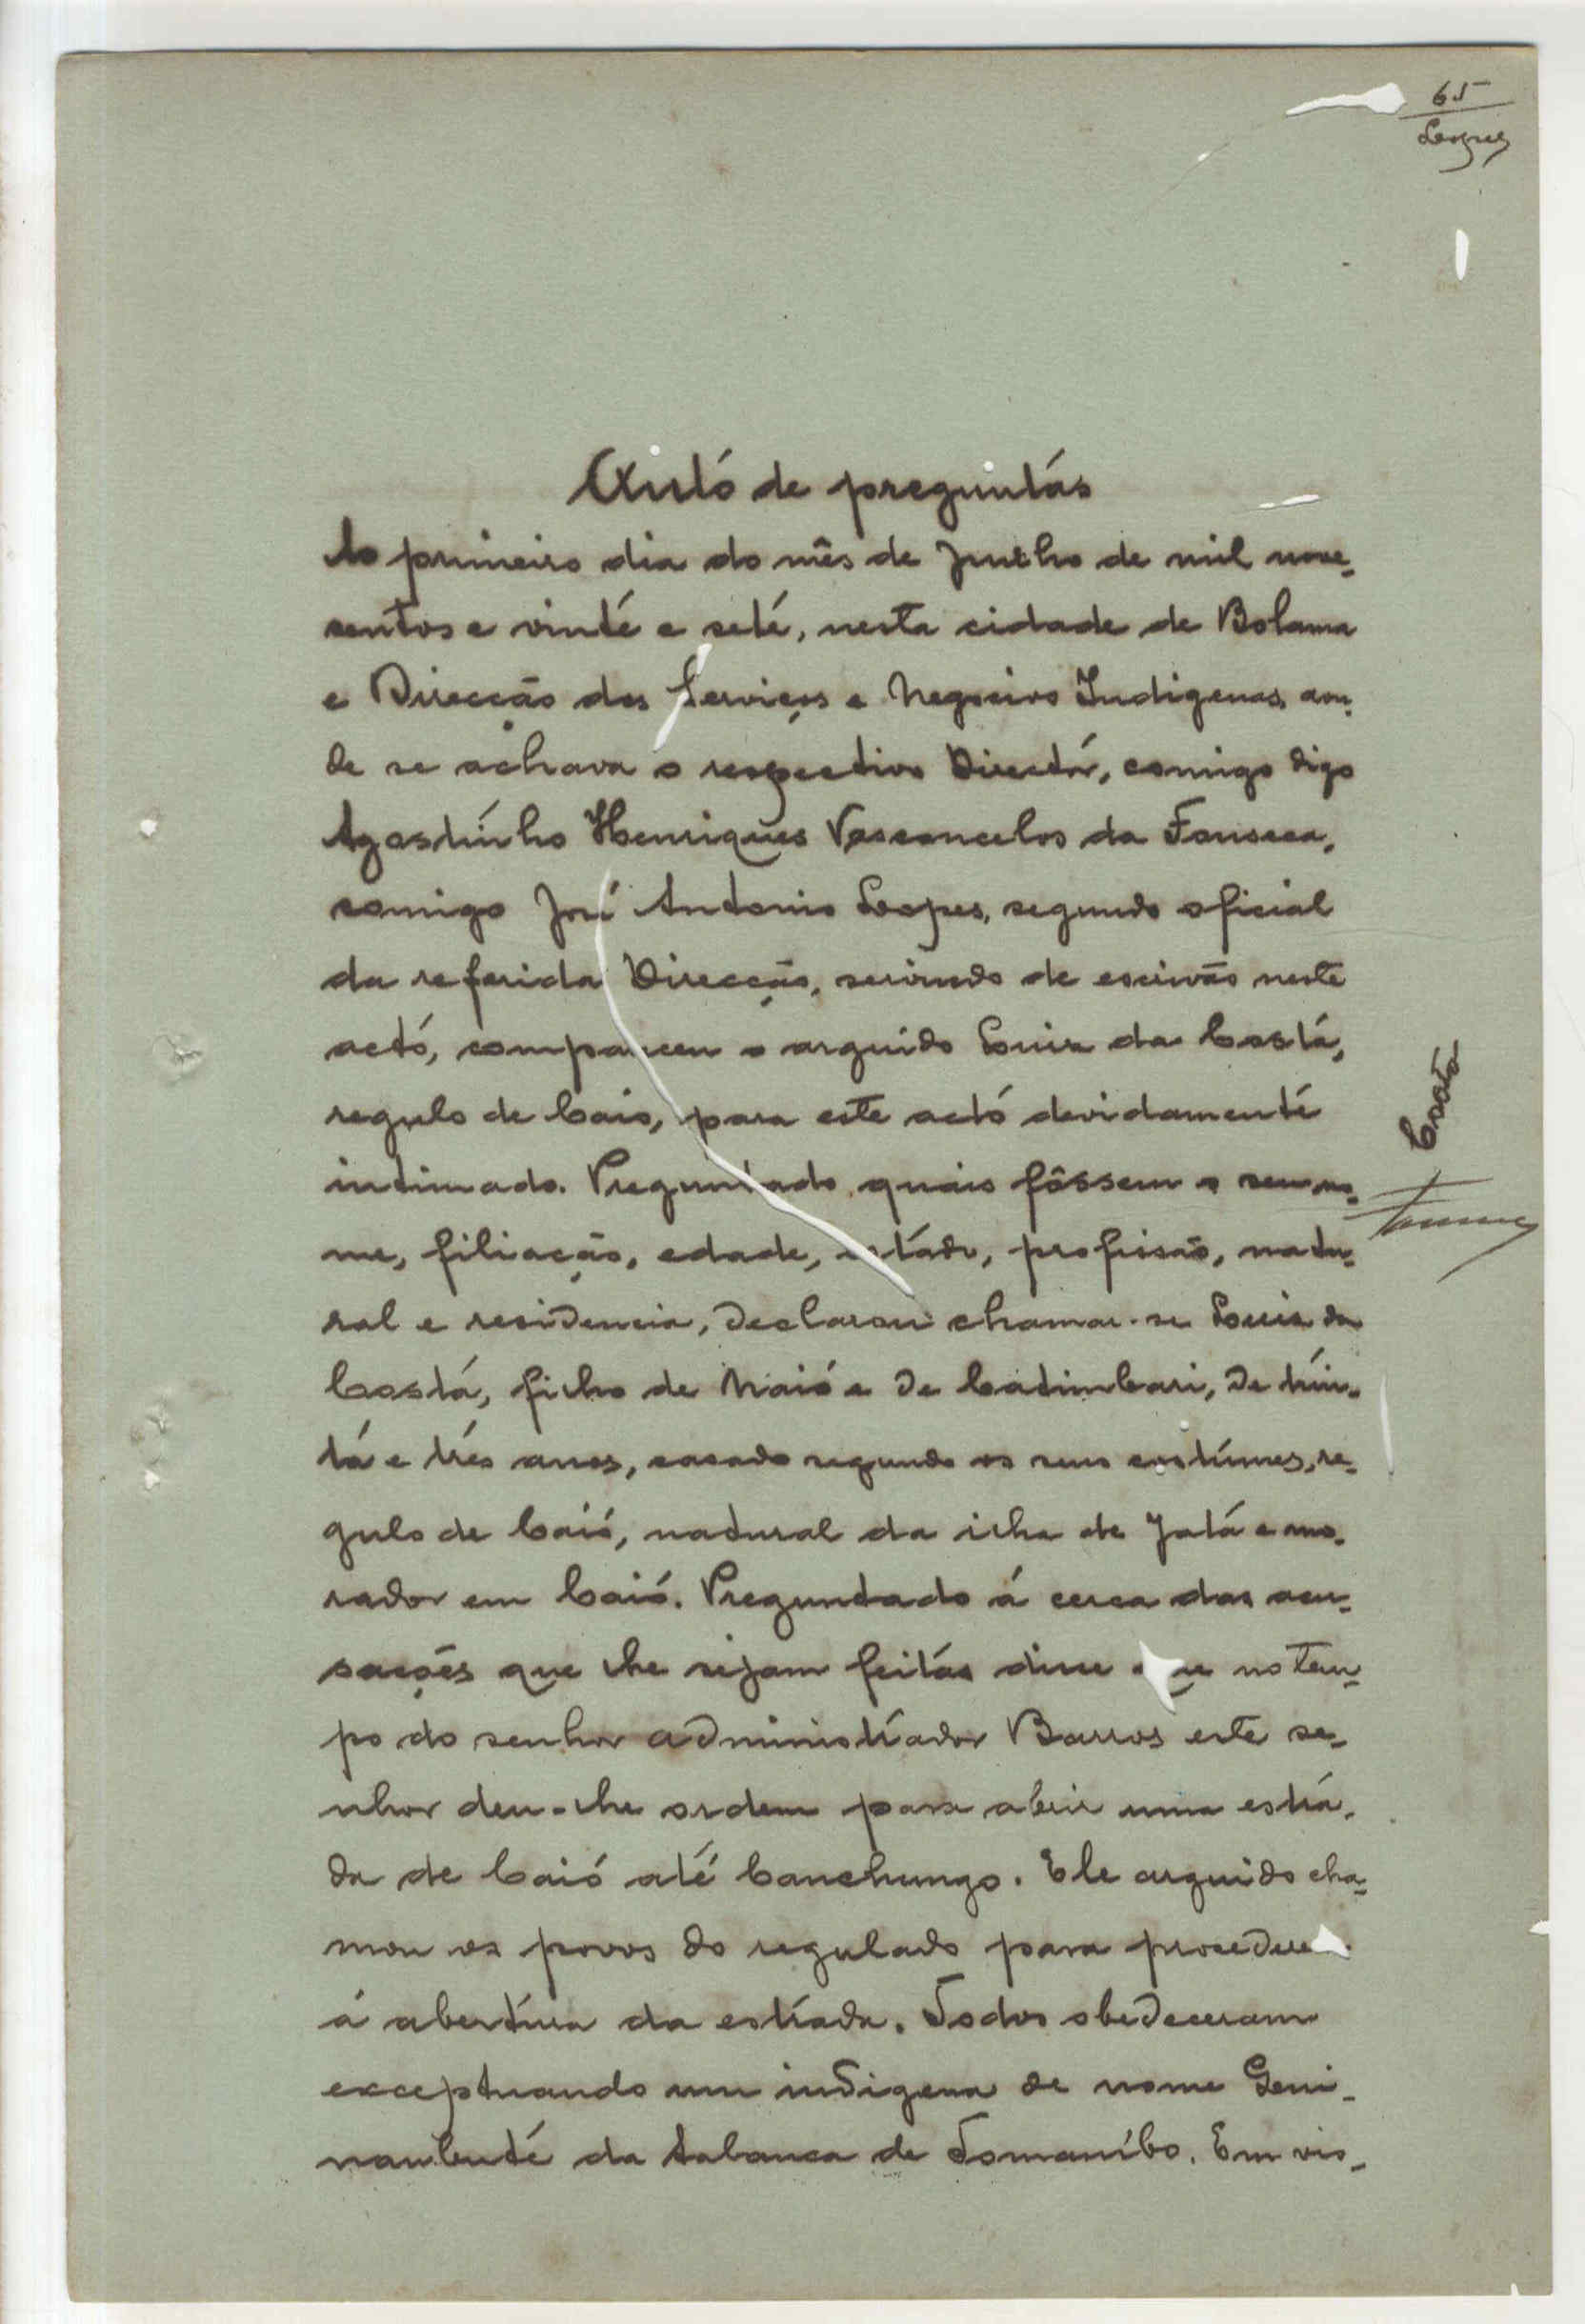 65
Lopes
Auto de preguntas
Ao primeiro dia do mês de Junho de mil nove-
centos e vinte e sete, nesta cidade de Bolama
e Direcção dos Serviços e Negocios Indigenas, aon-
de se achava o respectivo Director, comigo digo
Agostinho Henriques Vasconcelos da Fonseca,
comigo José Antonio Lopes, segundo oficial
da referida Direcção, servindo de escrivão neste
acto, compareceu o arguido Luiz da Costa,
regulo de Caio, para este acto devidamente
intimado. Preguntado quais fôssem o seu no-
me, filiação, edade, estado, profissão, natu-
ral e residencia, declarou chamar-se Luiz da
Costa, filho de Naió e de Catimbari, de trin-
ta e três anos, casado segundo os seus costumes, re-
gulo de Caió, natural da ilha de Jatá e mo-
rador em Caió. Preguntado á cerca das acu-
sações que lhe sejam feitas disse que no tem-
po do senhor administrador Barros este se-
nhor deu-lhe ordem para abrir uma estra-
da de Caió até Canchungo. Ele arguido cha-
mou os povos do regulado para procederem
á abertura da estrada. Todos obedeceram
exceptuando um indigena de nome Geni-
nambuté da tabanca de Tomanibo. Em vis-
Costa